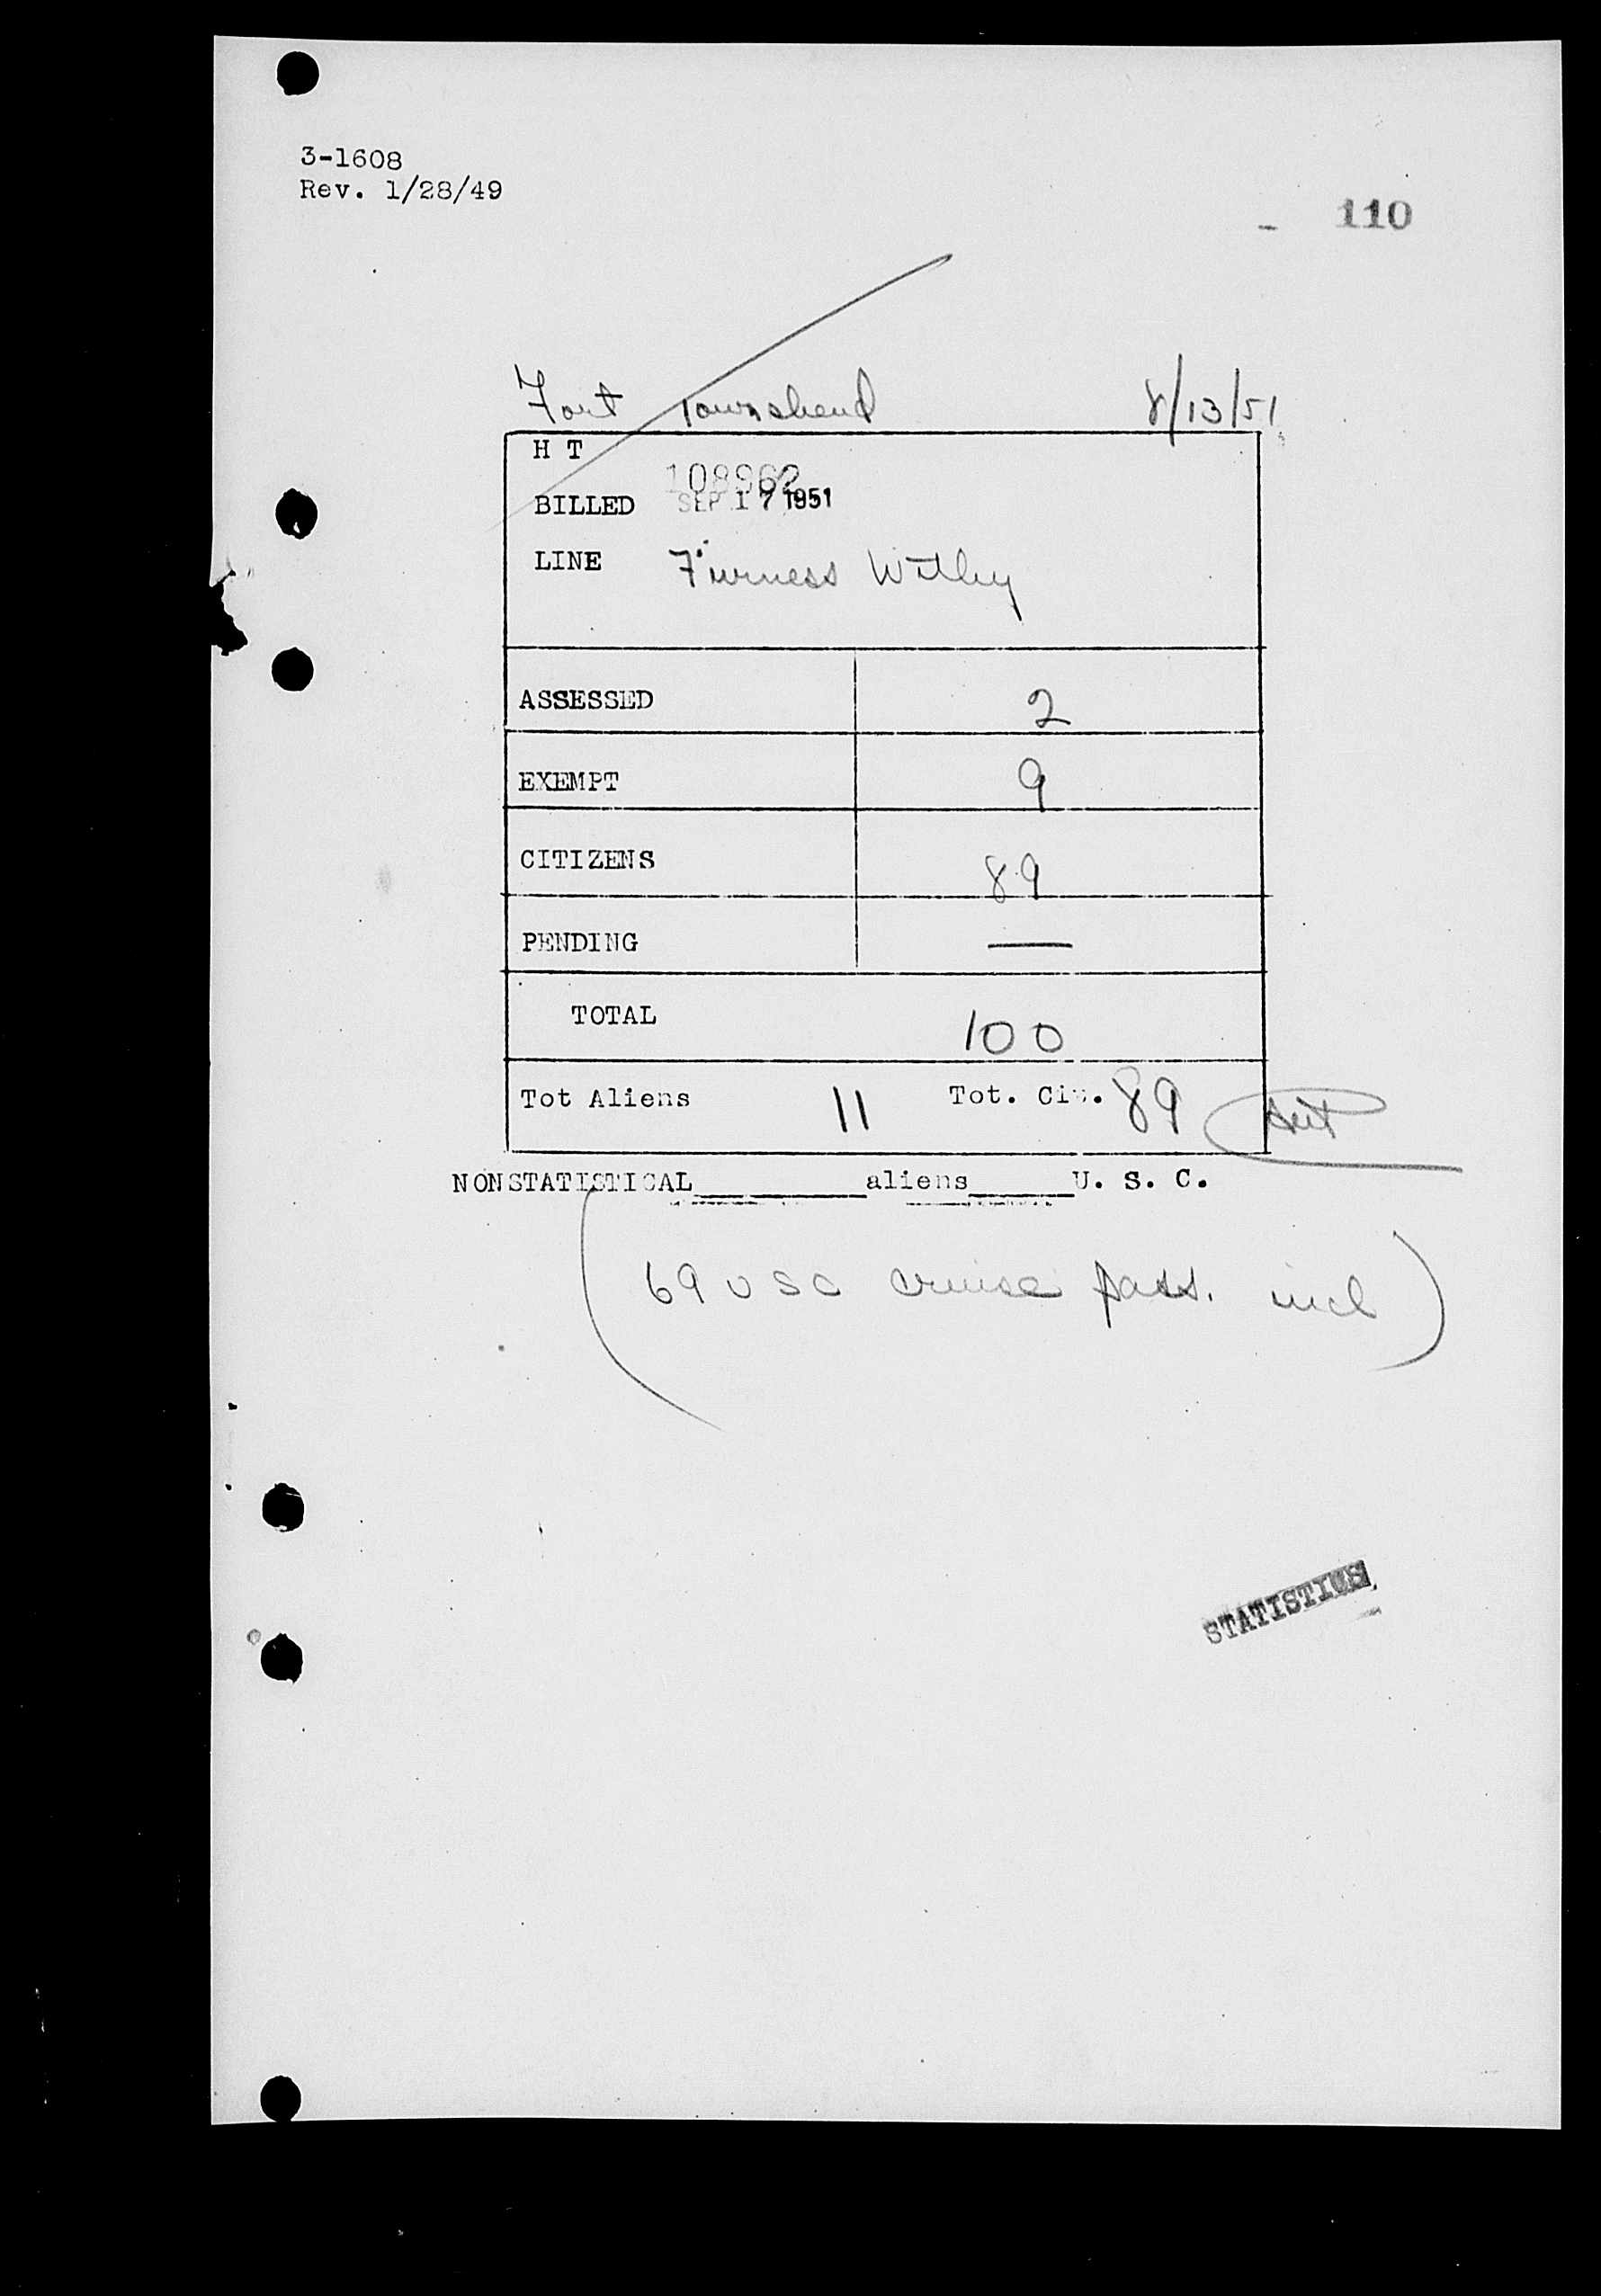 3-1608
Rev. 1/28/49
110
Fort Townshend 8/13/51
H T
108962
BILLED SEP 17 1951
LINE Furness Withy
ASSESSED 2
EXEMPT 9
CITIZENS 89
PENDING —
TOTAL 100
Tot Aliens 11 Tot. Cit. 89
NONSTATISTICAL________aliens_____U. S. C.
(69 USC cruise pass. incl)
STATISTICS